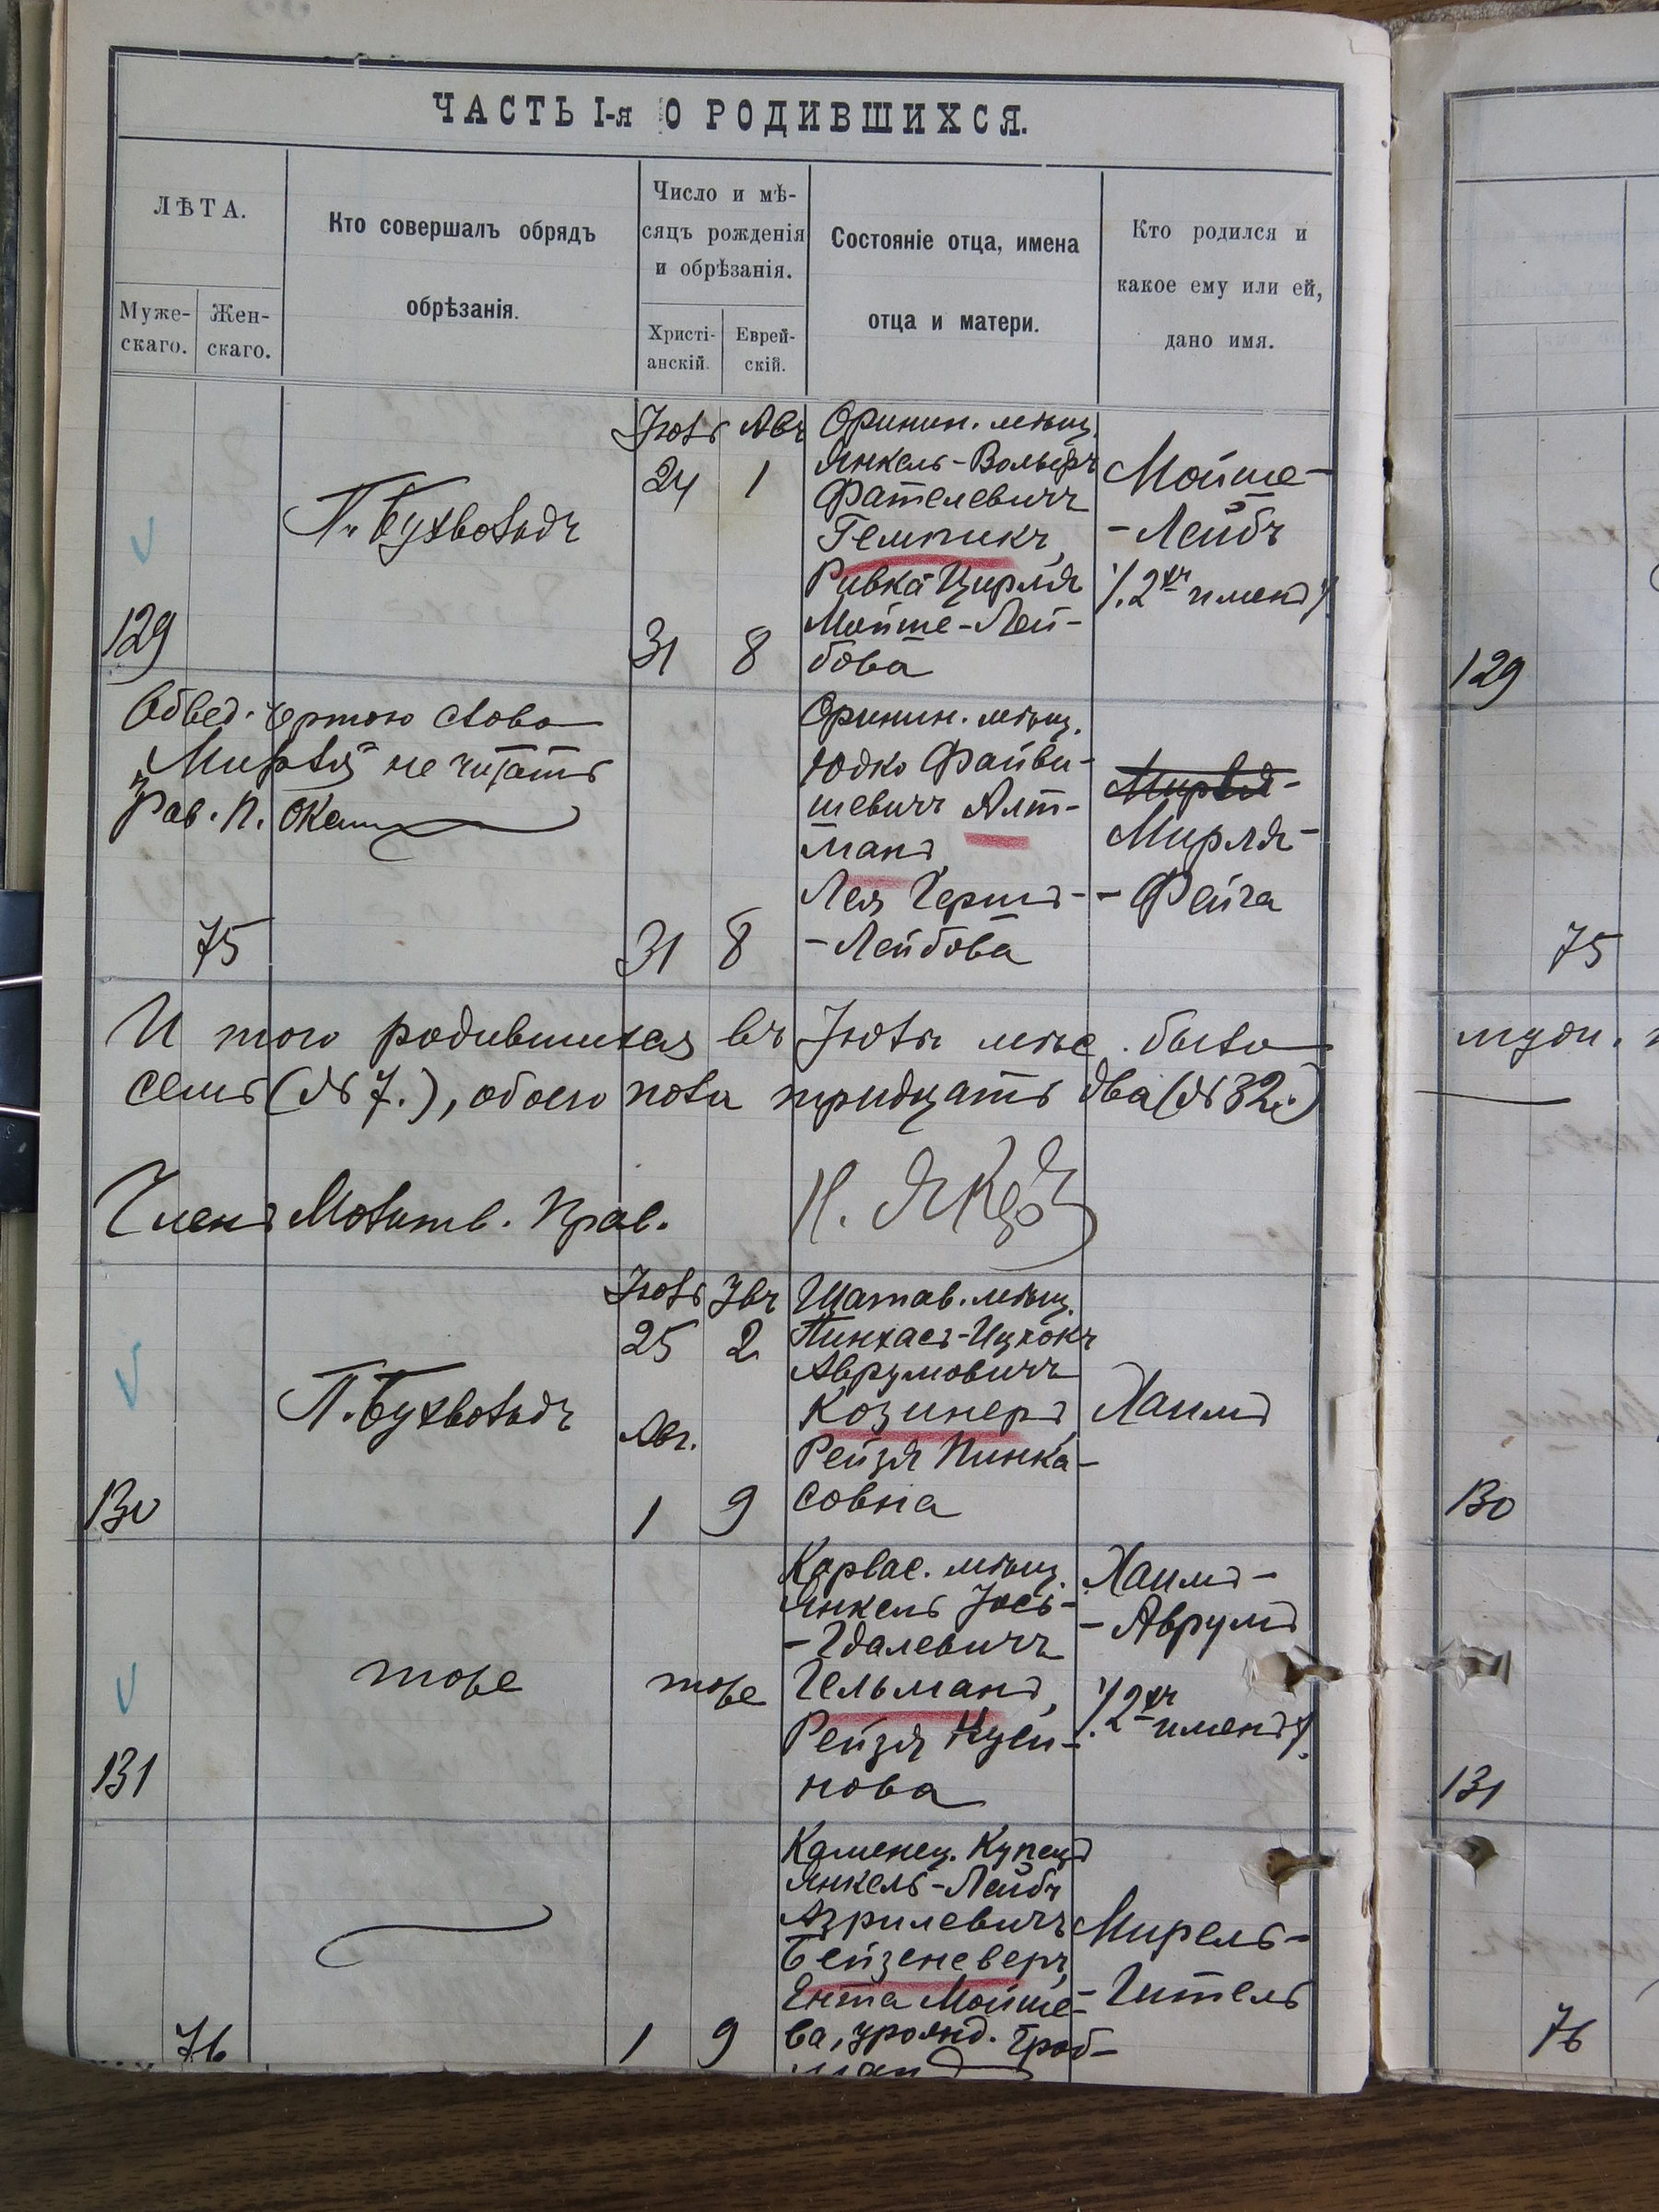 ЧАСТЬ I-я О РОДИВШИХСЯ.
ЛѢТА.
Муже-
скаго.
Жен-
скаго.
Кто совершалъ обрядъ
обрѣзанія.
Число и мѣ-
сяцъ рожденія
и обрѣзанія.
Христі-
анскій.
Еврей-
скій.
Состояніе отца, имена
отца и матери.
Кто родился и
какое ему или ей,
дано имя.
129
П. Бухвольдъ
Іюль Авъ
24 1
31 8
Оринин. мѣщ.
Янкель-Вольфъ
Фателевичъ
Гемпикъ,
Ривка Цирля
Мойше-Лей-
бова
Мойше-
-Лейбъ
/.2хъ именъ/
Обвед. чертою слова
"Мирля" не читать
Рав. П.
75
31 8
Оринин. мѣщ.
Юдко Файви-
шевичъ Алт-
манъ
Лея Герша-
-Лейбова
Мирля-
Мирля-
-Фейга
И того родившихся въ Іюлѣ мѣс. было
семь (№ 7.), обоего пола тридцать два (№ 32.)
Членъ Молитв. Прав.
130
П. Бухвольдъ
Іюль
25 2
Авг.
1 9
Шатав. мѣщ.
Пинхасъ-Ицхокъ
Аврумовичъ
Козинеръ,
Рейзя Пинка-
совна
Хаимъ
131
тоже
тоже
Карвас. мѣщ.
Янкель Іось-
-Гдалевичъ
Гельманъ,
Рейзя Нуси-
нова
Хаимъ-
-Аврумъ
/.2хъ именъ/.
76
1 9
Каменец. Купецъ
Янкель-Лейбъ
Азрилевичъ
Бейзеневеръ,
Ента Мойше-
ва, урожд. Гроб-
манъ
Мирель-
-Гитель
129
75
130
131
76